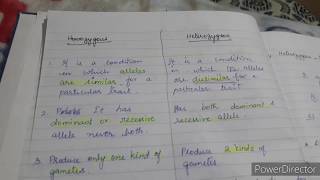 Homozygous
Heterozygous
1. It is a condition
in which alleles
are similar for a
particular trait.
It is a condition
in which the alleles
are dissimilar for a
particular trait
2. It has
dominant or recessive
allele never both
Has both dominant &
recessive allele.
3. Produce only one kind of
gametes.
Produce 2 kinds of
gametes.
PowerDirector